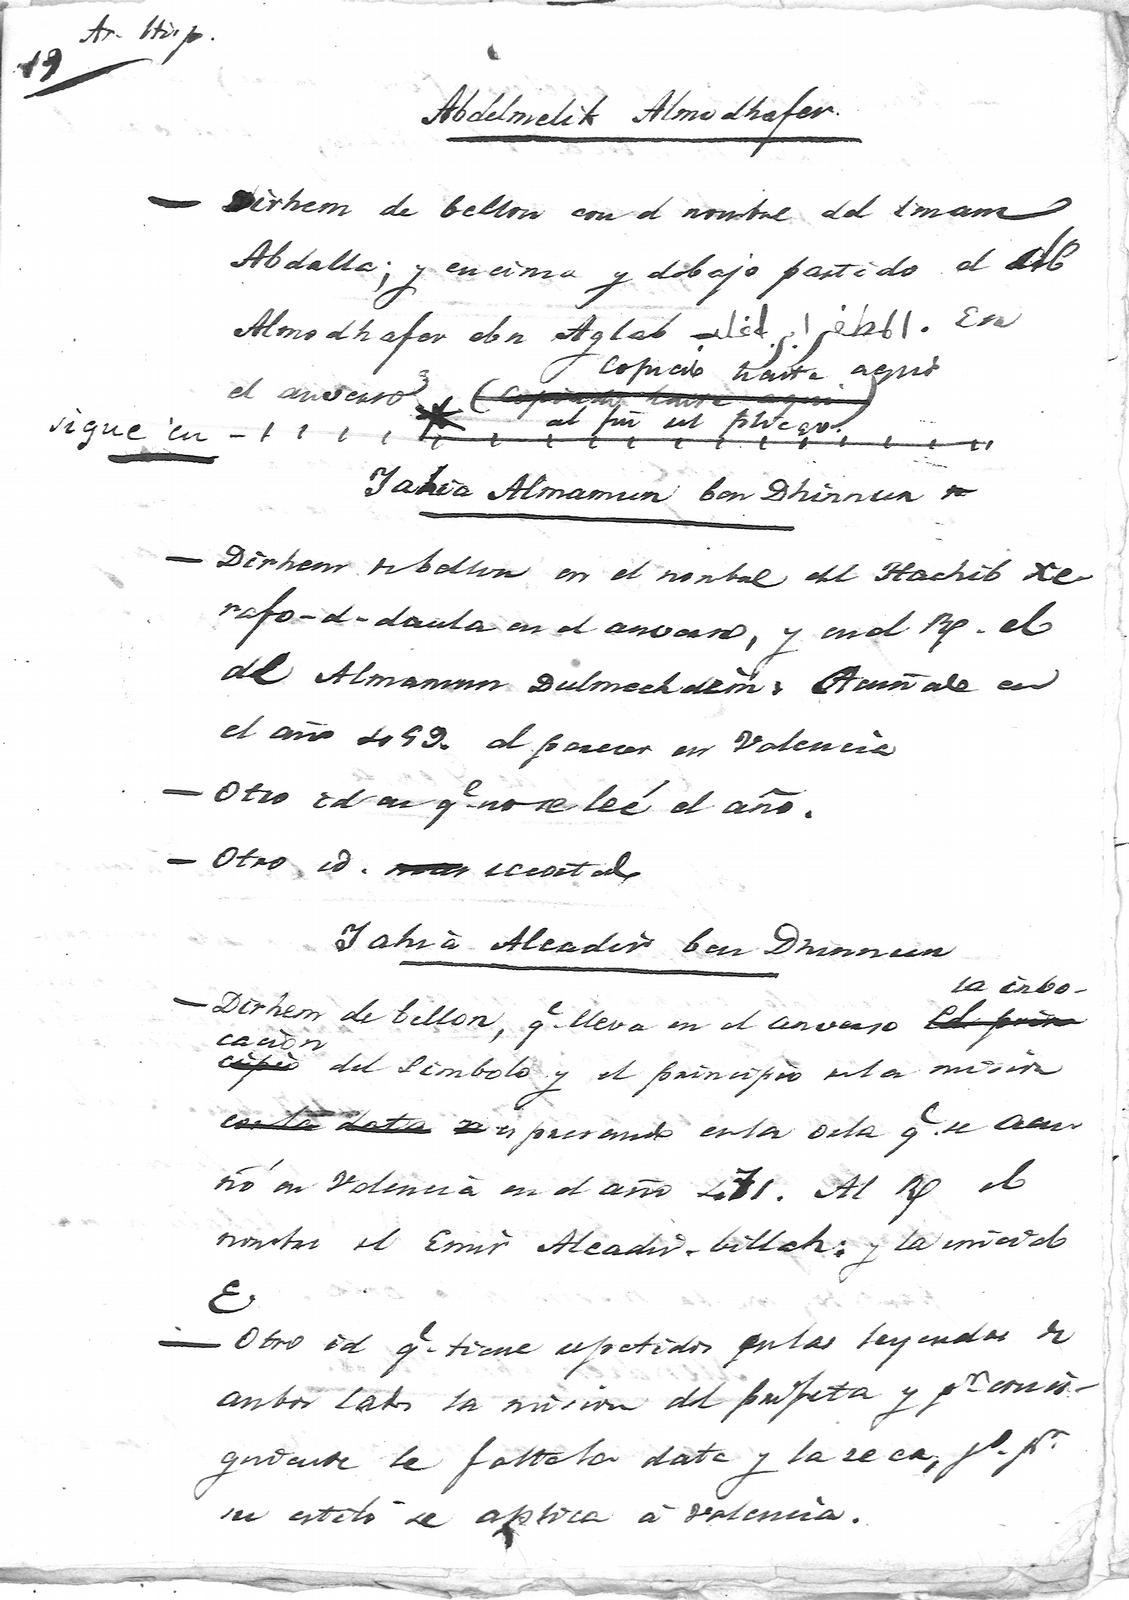 Ar. Hisp.
19
Abdelmelik Almodhafer.
— Dirhem de bellon con el nombre del Imam
Abdalla; y encima y debajo partido el de
Almodhafer ebn Aglab المظفر ابن اغلب. En
el anverso
Copiado hasta aqui
(Copiado hasta aqui)
al fin del pliego.
sigue en
Jahia Almamun ben Dhinnun
— Dirhem de bellon en el nombre del Hachib Xe-
rafo-d-daula en el anverso, y en el R/. el
de Almamun Dulmechdein: Acuñale en
el año 459. al parecer en Valencia
— Otro id en qe no se leé el año.
— Otro id.
Jahia Alcadir ben Dhinnun
— Dirhem de bellon, qe lleva en el anverso el prin
la inbo-
cación
cipio del Simbolo y el principio de la mision
con la data espresando en la orla qe se acu-
ñó en Valencia en el año 471. Al R/ el
nombre del Emir Alcadir-billah: y la unidad
E
— Otro id qe tiene repetidos en las leyendas de
ambos lados la mision del profeta y pr consi-
guiente le falta la data y la zeca, po. pr
su estilo se aplica á Valencia.